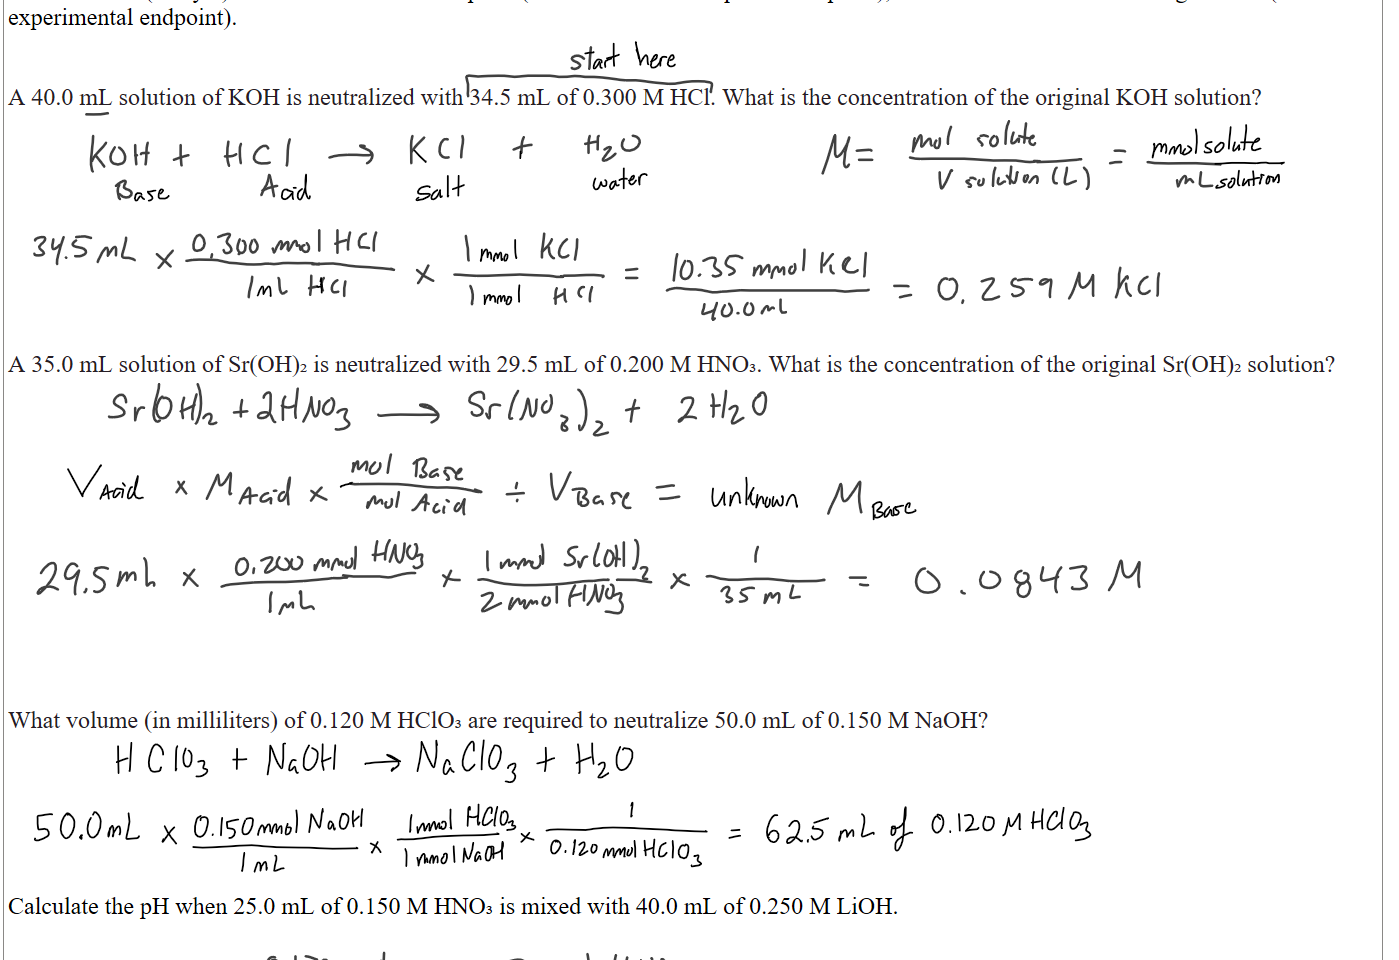 experimental endpoint).
start here
A 40.0 mL solution of KOH is neutralized with 34.5 mL of 0.300 M HCl. What is the concentration of the original KOH solution?
KOH + HCl → KCl + H₂O
Base Acid salt water
M = mol solute / V solution (L) = mmol solute / mL solution
34.5 mL × 0.300 mmol HCl / 1 mL HCl × 1 mmol KCl / 1 mmol HCl = 10.35 mmol KCl / 40.0 mL = 0.259 M KCl
A 35.0 mL solution of Sr(OH)₂ is neutralized with 29.5 mL of 0.200 M HNO₃. What is the concentration of the original Sr(OH)₂ solution?
Sr(OH)₂ + 2HNO₃ → Sr(NO₃)₂ + 2 H₂O
V Acid × M Acid × mol Base / mol Acid ÷ V Base = unknown M Base
29.5 mL × 0.200 mmol HNO₃ / 1 mL × 1 mmol Sr(OH)₂ / 2 mmol HNO₃ × 1 / 35 mL = 0.0843 M
What volume (in milliliters) of 0.120 M HClO₃ are required to neutralize 50.0 mL of 0.150 M NaOH?
HClO₃ + NaOH → NaClO₃ + H₂O
50.0 mL × 0.150 mmol NaOH / 1 mL × 1 mmol HClO₃ / 1 mmol NaOH × 1 / 0.120 mmol HClO₃ = 62.5 mL of 0.120 M HClO₃
Calculate the pH when 25.0 mL of 0.150 M HNO₃ is mixed with 40.0 mL of 0.250 M LiOH.